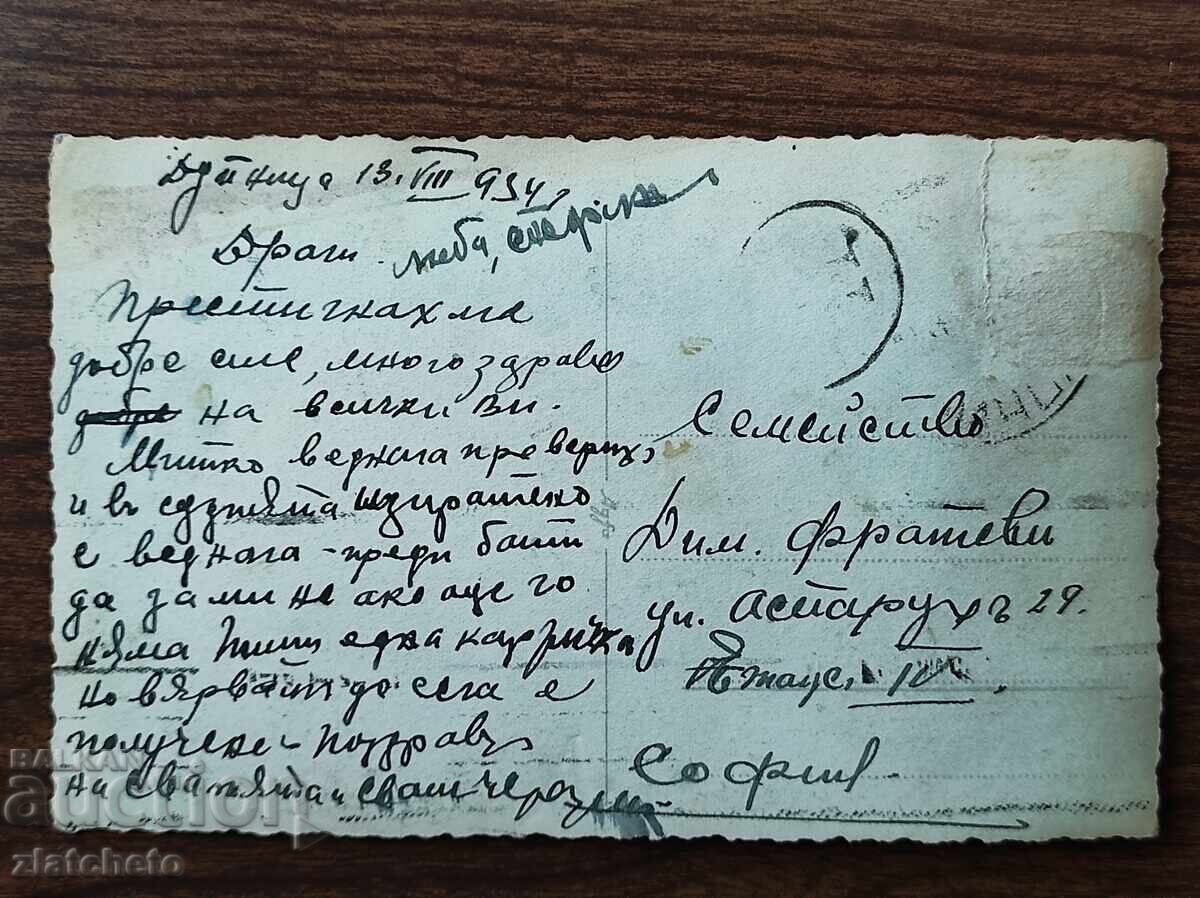 Дупница 13.VIII 934,
Драги Люба, Стефка
Пристигнахме
добре сме, много здраве
на всички Ви.
Митко веднага проверих,
и въ изпратено
е веднага - преди бат
да замине ако още го
няма пиши една картичка
но вярвам до сега е
получен - поздравъ
на сватята и сват
Семейство
Дим. Фратеви
ул. Аспарухъ 29.
Етаж IV.
София
BALKAN
auction
zlatcheto